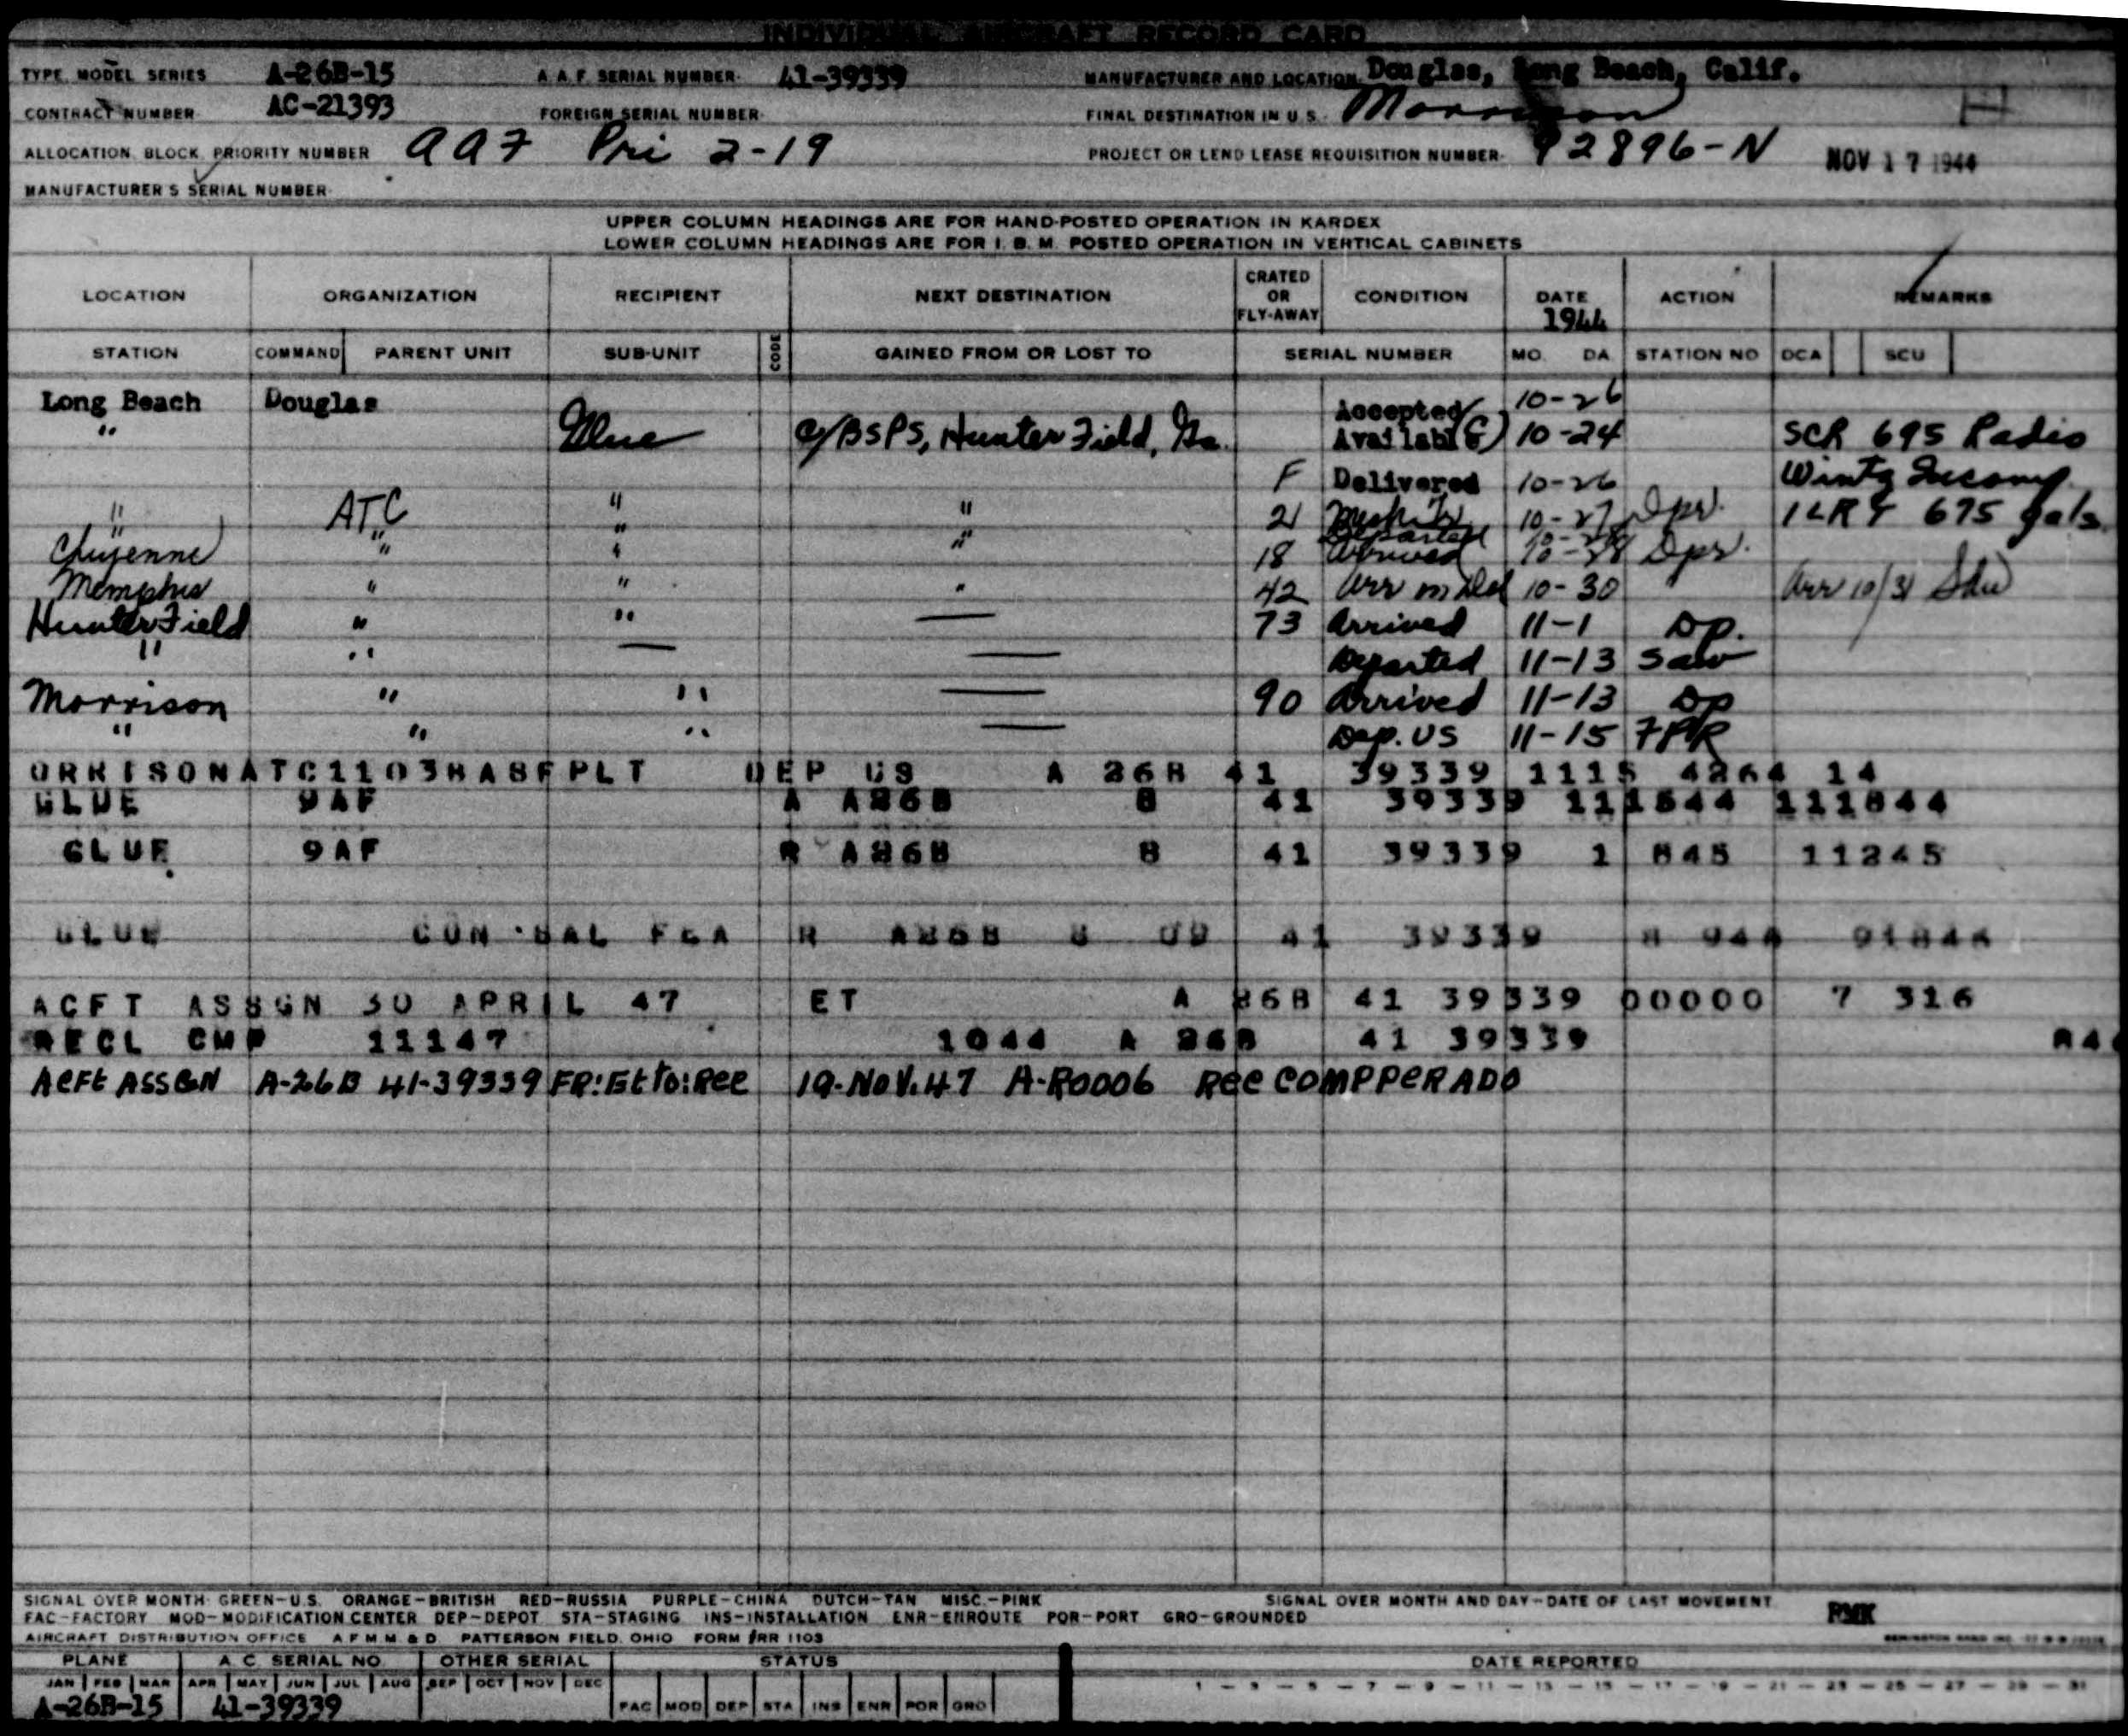 INDIVIDUAL AIRCRAFT RECORD CARD
TYPE, MODEL, SERIES A-26B-15 A.A.F. SERIAL NUMBER 41-39339 MANUFACTURER AND LOCATION Douglas, Long Beach, Calif.
CONTRACT NUMBER AC-21393 FOREIGN SERIAL NUMBER FINAL DESTINATION IN U.S. Morrison
ALLOCATION, BLOCK, PRIORITY NUMBER Pri 2-19 PROJECT OR LEND LEASE REQUISITION NUMBER 92896-N NOV 17 1944
MANUFACTURER'S SERIAL NUMBER
UPPER COLUMN HEADINGS ARE FOR HAND-POSTED OPERATION IN KARDEX
LOWER COLUMN HEADINGS ARE FOR I. B. M. POSTED OPERATION IN VERTICAL CABINETS
LOCATION ORGANIZATION RECIPIENT NEXT DESTINATION CRATED OR FLY-AWAY CONDITION DATE 1944 ACTION REMARKS
STATION COMMAND PARENT UNIT SUB-UNIT CODE GAINED FROM OR LOST TO SERIAL NUMBER MO. DA. STATION NO DCA SCU
Long Beach Douglas Accepted 10-26
" Glue c/BSPS, Hunter Field, Ga. Available 10-24 SCR 695 Radio
F Delivered 10-26
" ATC " " 21 10-27 675 gals
" " " " Departed
Cheyenne " " 18 Arrived 10-28
Memphis " " " 42 10-30 Arr 10/31
Hunter Field " " — 73 Arrived 11-1 DP.
" " — — Departed 11-13 Saw
Morrison " " — 90 Arrived 11-13 DP
" " " — Dep. US 11-15 FPR
ORRISONATC1103BASFPLT DEP US A 26B 41 39339 1115 4264 14
GLUE 9AF A A26B 8 41 39339 111544 111844
GLUE 9AF R A26B 8 41 39339 1 845 11245
GLUE CON SAL FEA R A26B 41 39339
ACFT ASSGN 30 APRIL 47 ET A 26B 41 39339 00000 7 316
RECL CMP 11147 1044 A 26B 41 39339
Acft ASSGN A-26B 41-39339 FR:Et to:Rec 19-Nov.47 A-R0006 Rec COMPPERADO
SIGNAL OVER MONTH: GREEN-U.S. ORANGE-BRITISH RED-RUSSIA PURPLE-CHINA DUTCH-TAN MISC.-PINK SIGNAL OVER MONTH AND DAY-DATE OF LAST MOVEMENT
FAC-FACTORY MOD-MODIFICATION CENTER DEP-DEPOT STA-STAGING INS-INSTALLATION ENR-ENROUTE POR-PORT GRO-GROUNDED RMK
AIRCRAFT DISTRIBUTION OFFICE A.F.M.M. & D. PATTERSON FIELD, OHIO FORM #RR 1103
PLANE A.C. SERIAL NO. OTHER SERIAL STATUS DATE REPORTED
JAN FEB MAR APR MAY JUN JUL AUG SEP OCT NOV DEC
1 - 3 - 5 - 7 - 9 - 11 - 13 - 15 - 17 - 19 - 21 - 23 - 25 - 27 - 29 - 31
A-26B-15 41-39339 FAC MOD DEP STA INS ENR POR GRO